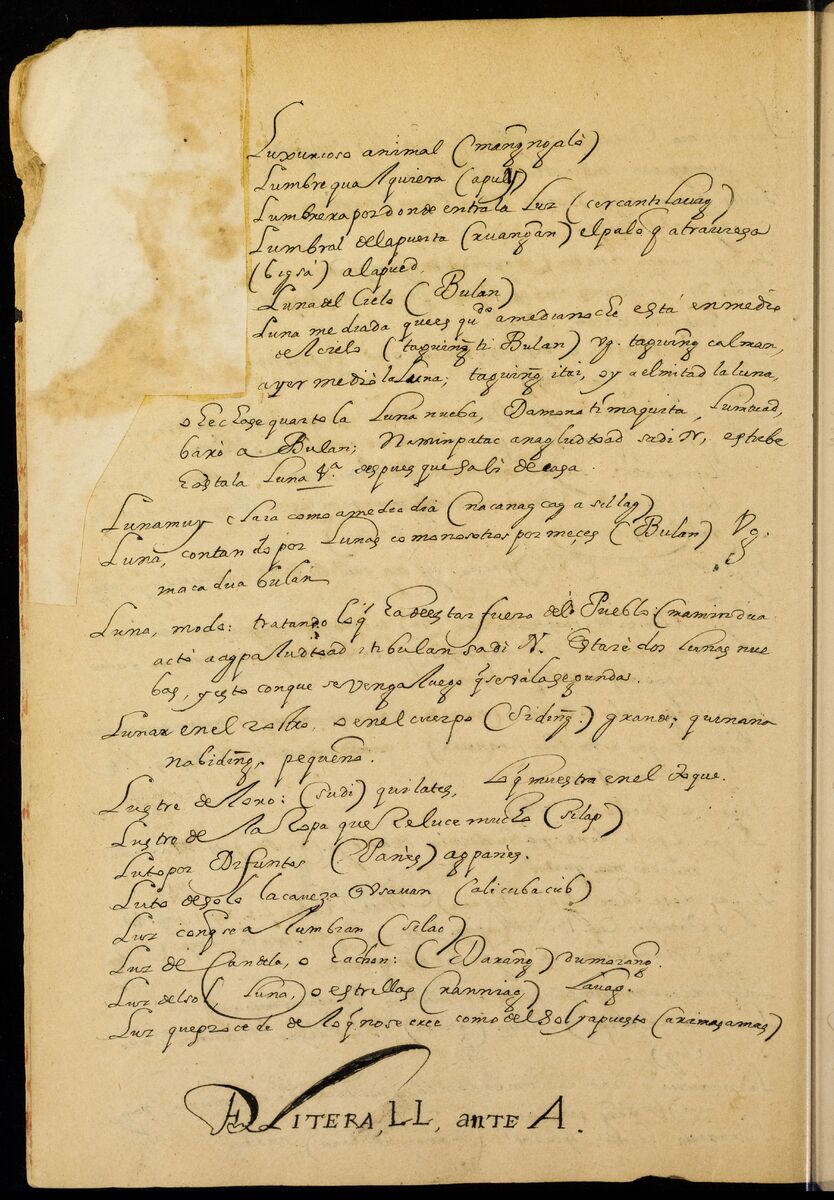 Luxurioso animal (mang̃ng̃aló)
Lumbre qualquiera (apuy)
Lumbrera por donde entra la Luz (cercanti lauag)
Lumbral dela puerta (ruang̃an) el palo q̃ atrauieza
(bigsá) a la pued.
Luna del Cielo (Bulan)
Luna mediada que es qu.do amedianoche está en medio
del cielo (taguing̃ ti Bulan) vg. taguing̃ calman,
ayer medió la Luna; taguing̃ itai, oy a el mitad la luna,
o hechose quarto la Luna nueba, Damona ti maquita, Lumtuad,
baró a Bulan; Naminpatac anagludtuad sadi N, estube
hasta la Luna 4.a despues que sali de casa.
Luna muy clara como a medio dia (nacanagcag a sillag)
Luna, contando por Lunas como nosotros por meçes (Bulan) Vg.
maca dua bulan
Luna, modo: tratando lo q̃ ha de estar fuera del Pueblo: (namindua
acto aagpaludtuad iti bulan sadi N. Estaré dos Lunas nue
bas, y esto con que se venga luego q̃ se vá la segunda.
Lunar en el rostro, o en el cuerpo (siding̃.) grande; quinana
nabiding̃, pequeño.
Lustre del oro: (sudi) quilates, lo q̃ muestra en el toque.
Lustre de la Ropa que Reluce mucho (silap)
Luto por Difuntos (Panes) agpanes.
Luto de solo la caueza q̃ Vsauan (alicubucub)
Luz con q̃ se alumbran (silao)
Luz de Candela, o hachon: (Darang̃) dumarang̃.
Luz del sol, Luna, o estrellas (ranniag) Lauag.
Luz que procede de lo q̃ no se cree como del Sol ya puesto (aramasamas)
LITERA, LL, ante A.